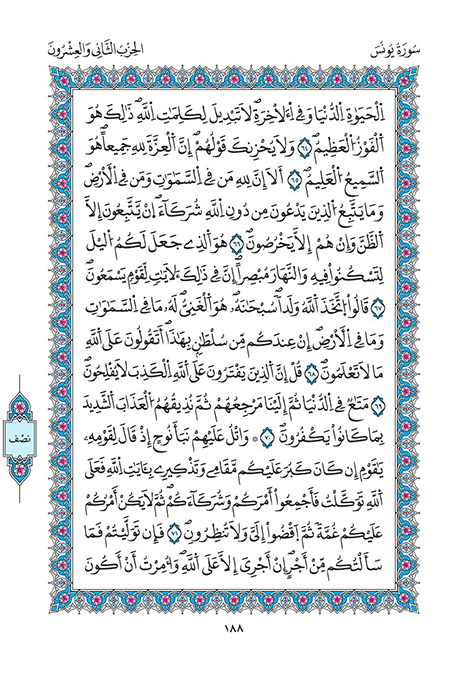 سُورَةُ يُونُسَ
الحِزْبُ الثَّانِي وَالعِشْرُونَ
اِ۬لْحَيَوٰةِ اِ۬لدُّنْيَا وَفِي اِ۬لَاخِرَةِۖ لَا تَبْدِيلَ لِكَلِمَٰتِ اِ۬للَّهِۖ ذَٰلِكَ هُوَ
اَ۬لْفَوْزُ اُ۬لْعَظِيمُۖ ٦٤ وَلَا يُحْزِنكَ قَوْلُهُمُۥٓۖ إِنَّ اَ۬لْعِزَّةَ لِلهِ جَمِيعاًۖ هُوَ
اَ۬لسَّمِيعُ اُ۬لْعَلِيمُۖ ٦٥ أَلَآ إِنَّ لِلهِ مَن فِي اِ۬لسَّمَٰوَٰتِ وَمَن فِي اِ۬لَارْضِۖ
وَمَا يَتَّبِعُ اُ۬لذِينَ يَدْعُونَ مِن دُونِ اِ۬للَّهِ شُرَكَآءَۖ انْ يَّتَّبِعُونَ إِلَّا
اَ۬لظَّنَّ وَإِنْ هُمُۥٓ إِلَّا يَخْرُصُونَۖ ٦٦ هُوَ اَ۬لذِے جَعَلَ لَكُمُ اُ۬ليْلَ
لِتَسْكُنُواْ فِيهِ وَالنَّهَارَ مُبْصِراًۖ اِنَّ فِي ذَٰلِكَ لَأٓيَٰتٖ لِّقَوْمٖ يَسْمَعُونَۖ
٦٧ قَالُواْ اُ۪تَّخَذَ اَ۬للَّهُ وَلَداٗۖ سُبْحَٰنَهُۥ هُوَ اَ۬لْغَنِيُّ لَهُۥ مَا فِي اِ۬لسَّمَٰوَٰتِ
وَمَا فِي اِ۬لَارْضِۖ إِنْ عِندَكُم مِّن سُلْطَٰنِۢ بِهَٰذَآۖ أَتَقُولُونَ عَلَى اَ۬للَّهِ
مَا لَا تَعْلَمُونَۖ ٦٨ قُلِ اِنَّ اَ۬لذِينَ يَفْتَرُونَ عَلَى اَ۬للَّهِ اِ۬لْكَذِبَ لَا يُفْلِحُونَۖ
٦٩ مَتَٰعٞ فِي اِ۬لدُّنْيَا ثُمَّ إِلَيْنَا مَرْجِعُهُمْ ثُمَّ نُذِيقُهُمُ اُ۬لْعَذَابَ اَ۬لشَّدِيدَ
بِمَا كَانُواْ يَكْفُرُونَۖ ٧٠ وَاتْلُ عَلَيْهِمْ نَبَأَ نُوحٍ اِذْ قَالَ لِقَوْمِهِۦ
يَٰقَوْمِ إِن كَانَ كَبُرَ عَلَيْكُم مَّقَامِے وَتَذْكِيرِے بِـَٔايَٰتِ اِ۬للَّهِ فَعَلَى
اَ۬للَّهِ تَوَكَّلْتُۖ فَأَجْمِعُوٓاْ أَمْرَكُمْ وَشُرَكَآءَكُمْ ثُمَّ لَا يَكُنَ اَمْرُكُمْ
عَلَيْكُمْ غُمَّةٗ ثُمَّ اَ۪قْضُوٓاْ إِلَيَّ وَلَا تُنظِرُونِۖ ٧١ فَإِن تَوَلَّيْتُمْ فَمَا
سَأَلْتُكُم مِّنَ اَجْرٍۖ اِنَ اَجْرِيَ إِلَّا عَلَى اَ۬للَّهِ وَأُمِرْتُ أَنَ اَكُونَ
نصْف
١٨٨